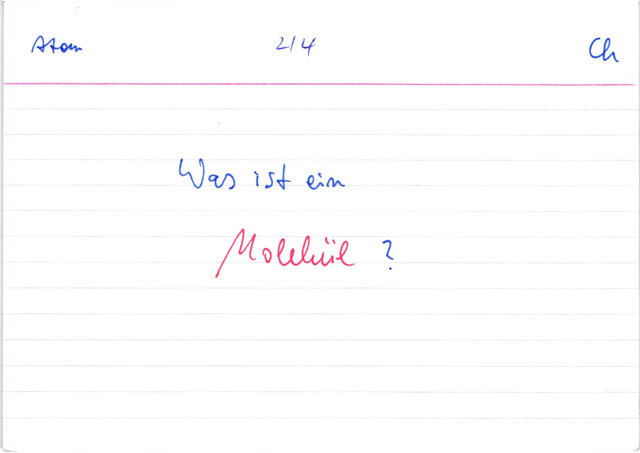 Atom 2/4 Ch
Was ist ein
Molekül ?